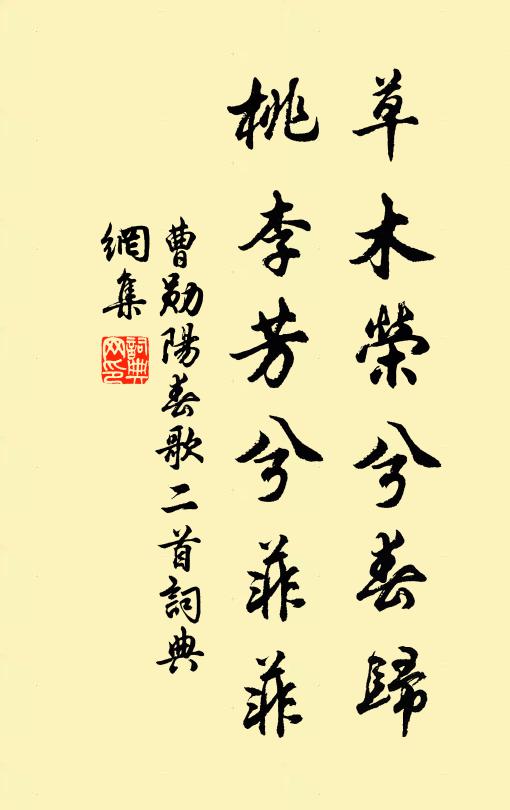 草木榮兮春歸
桃李芳兮菲菲
曹勛陽春歌二首詞典
網集
詞典
网印